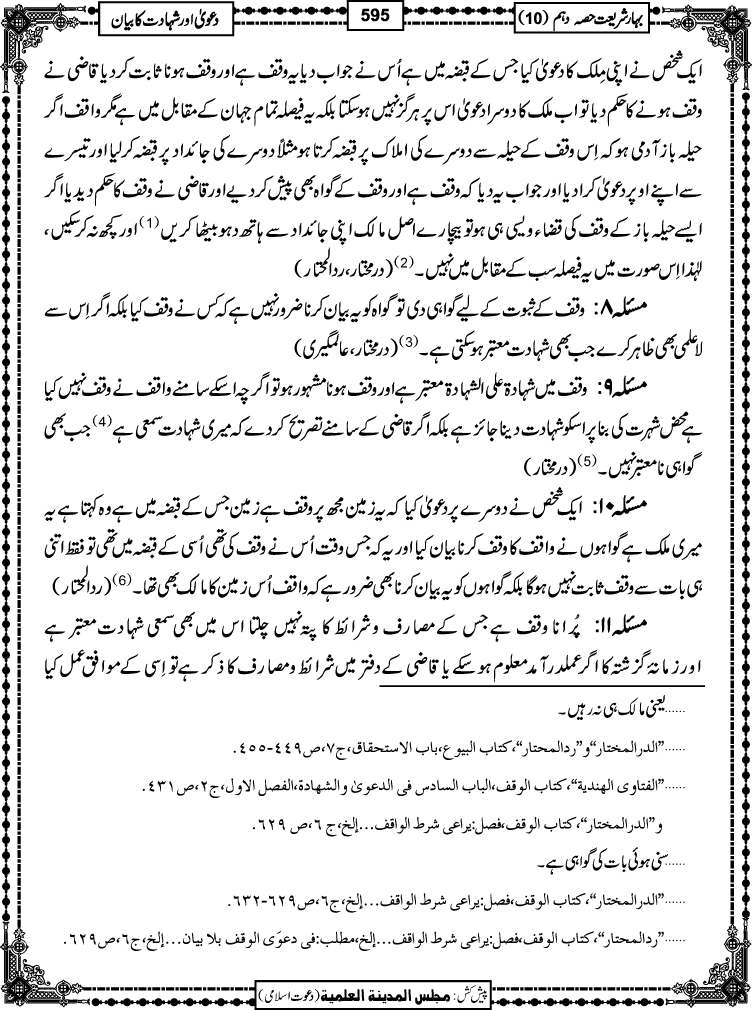 بہارِ شریعت حصہ دہم (10)
595
دعویٰ اور شہادت کا بیان
ایک شخص نے اپنی مِلک کا دعویٰ کیا جس کے قبضہ میں ہے اُس نے جواب دیا یہ وقف ہے اور وقف ہونا ثابت کردیا قاضی نے
وقف ہونے کا حکم دیا تو اب ملک کا دوسرا دعویٰ اس پر ہرگز نہیں ہوسکتا بلکہ یہ فیصلہ تمام جہان کے مقابل میں ہے مگر واقف اگر
حیلہ باز آدمی ہو کہ اِس وقف کے حیلہ سے دوسرے کی املاک پر قبضہ کرتا ہو مثلاً دوسرے کی جائداد پر قبضہ کرلیا اور تیسرے
سے اپنے اوپر دعویٰ کرادیا اور جواب یہ دیا کہ وقف ہے اور وقف کے گواہ بھی پیش کردیے اور قاضی نے وقف کا حکم دیدیا اگر
ایسے حیلہ باز کے وقف کی قضاء ویسی ہی ہو تو بیچارے اصل مالک اپنی جائداد سے ہاتھ دہو بیٹھا کریں (1) اور کچھ نہ کرسکیں،
لہٰذا اِس صورت میں یہ فیصلہ سب کے مقابل میں نہیں۔ (2) (درمختار، ردالمحتار)
مسئلہ ۸: وقف کے ثبوت کے لیے گواہی دی تو گواہ کو یہ بیان کرنا ضرور نہیں ہے کہ کس نے وقف کیا بلکہ اگر اِس سے
لاعلمی بھی ظاہر کرے جب بھی شہادت معتبر ہوسکتی ہے۔ (3) (درمختار، عالمگیری)
مسئلہ ۹: وقف میں شہادۃ علی الشہادۃ معتبر ہے اور وقف ہونا مشہور ہو تو اگرچہ اسکے سامنے واقف نے وقف نہیں کیا
ہے محض شہرت کی بنا پر اسکو شہادت دینا جائز ہے بلکہ اگر قاضی کے سامنے تصریح کردے کہ میری شہادت سمعی ہے (4) جب بھی
گواہی نامعتبر نہیں۔ (5) (درمختار)
مسئلہ ۱۰: ایک شخص نے دوسرے پر دعویٰ کیا کہ یہ زمین مجھ پر وقف ہے زمین جس کے قبضہ میں ہے وہ کہتا ہے یہ
میری ملک ہے گواہوں نے واقف کا وقف کرنا بیان کیا اور یہ کہ جس وقت اُس نے وقف کی تھی اُسی کے قبضہ میں تھی تو فقط اتنی
ہی بات سے وقف ثابت نہیں ہوگا بلکہ گواہوں کو یہ بیان کرنا بھی ضرور ہے کہ واقف اُس زمین کا مالک بھی تھا۔ (6) (ردالمحتار)
مسئلہ ۱۱: پُرانا وقف ہے جس کے مصارف و شرائط کا پتہ نہیں چلتا اس میں بھی سمعی شہادت معتبر ہے
اور زمانۂ گزشتہ کا اگر عملدرآمد معلوم ہوسکے یا قاضی کے دفتر میں شرائط ومصارف کا ذکر ہے تو اِسی کے موافق عمل کیا
......یعنی مالک ہی نہ رہیں۔
......"الدرالمختار" و "ردالمحتار"، کتاب البیوع، باب الاستحقاق، ج۷، ص۴۴۹-۴۵۵.
......"الفتاوی الھندیة"، کتاب الوقف، الباب السادس فی الدعویٰ والشھادة، الفصل الاول، ج۲، ص۴۳۱.
و"الدرالمختار"، کتاب الوقف، فصل: یراعی شرط الواقف...إلخ، ج۶، ص۶۲۹.
......سنی ہوئی بات کی گواہی ہے۔
......"الدرالمختار"، کتاب الوقف، فصل: یراعی شرط الواقف...إلخ، ج۶، ص۶۲۹-۶۳۲.
......"ردالمحتار"، کتاب الوقف، فصل: یراعی شرط الواقف...إلخ، مطلب: فی دعوَی الوقف بلا بیان...إلخ، ج۶، ص۶۲۹.
پیش کش: مجلس المدینة العلمیة (دعوتِ اسلامی)